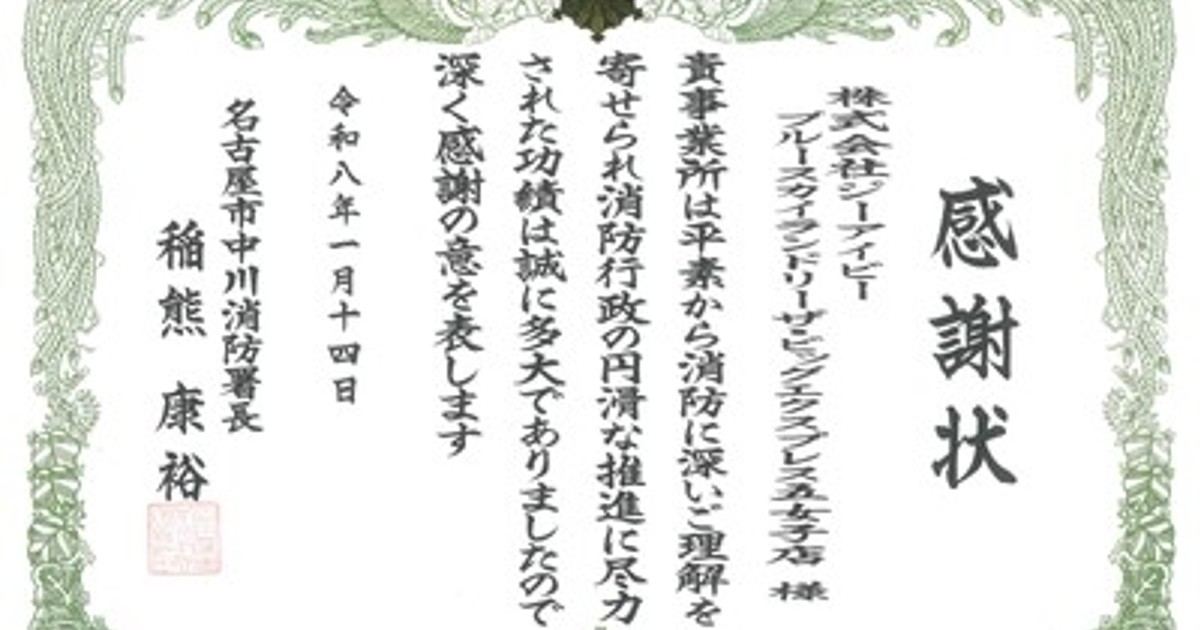 感謝状
株式会社ジーアイビー
ブルースカイランドリーザ・ビッグエクスプレス五女子店 様
貴事業所は平素から消防に深いご理解を
寄せられ消防行政の円滑な推進に尽力
された功績は誠に多大でありましたので
深く感謝の意を表します
令和八年一月十四日
名古屋市中川消防署長
稲熊 康裕